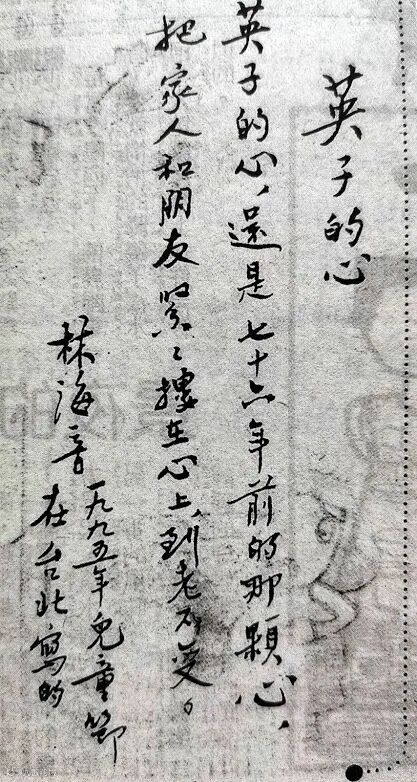 英子的心
英子的心，還是七十六年前的那顆心，
把家人和朋友緊緊摟在心上，到老不變。
林海音
一九九五年兒童節
在台北寫的